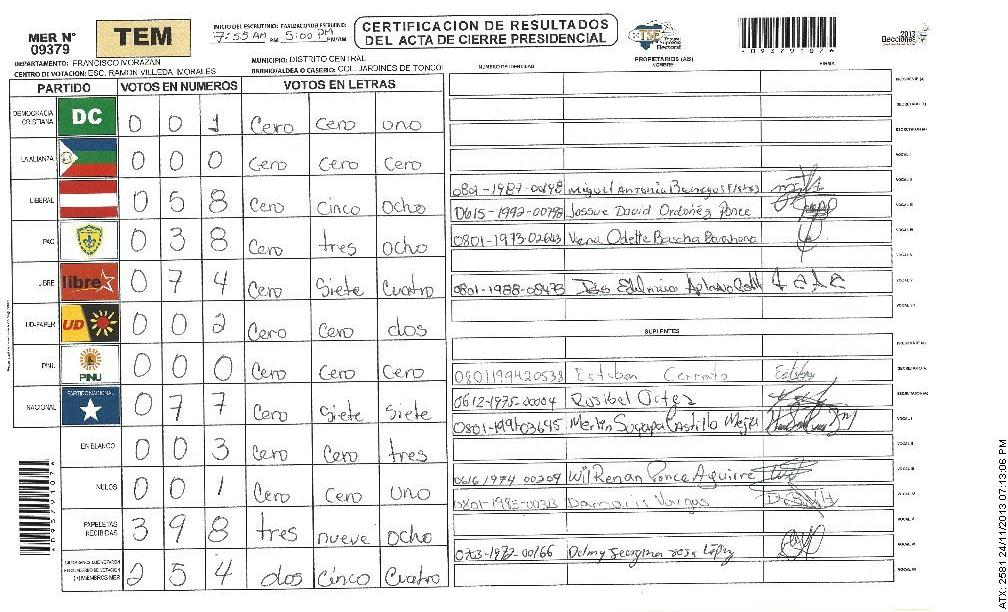 MER N° 09379
TEM
INICIO DEL ESCRUTINIO: FINALIZACION DE ESCRUTINIO:
7:55 AM PM 5:00 PM PM/AM
CERTIFICACION DE RESULTADOS
DEL ACTA DE CIERRE PRESIDENCIAL
TSE
Tribunal Supremo Electoral
*0937910 7*
2013
Elecciones
DEPARTAMENTO: FRANCISCO MORAZAN
MUNICIPIO: DISTRITO CENTRAL
CENTRO DE VOTACION: ESC. RAMON VILLEDA MORALES
BARRIO/ALDEA O CASERIO: COL. JARDINES DE TONCOI
NUMERO DE IDENTIDAD
PROPIETARIOS (AS)
NOMBRE
FIRMA
PARTIDO VOTOS EN NUMEROS VOTOS EN LETRAS
DEMOCRACIA CRISTIANA DC 0 0 1 Cero Cero uno
LA ALIANZA 0 0 0 Cero Cero Cero
LIBERAL 0 5 8 Cero Cinco Ocho
PAC 0 3 8 Cero tres ocho
LIBRE libre 0 7 4 Cero Siete Cuatro
UD-FAPER UD 0 0 2 Cero Cero dos
PINU PINU 0 0 0 Cero Cero Cero
NACIONAL PARTIDO NACIONAL 0 7 7 Cero Siete Siete
EN BLANCO 0 0 3 Cero Cero tres
NULOS 0 0 1 Cero Cero uno
PAPELETAS RECIBIDAS 3 9 8 tres nueve ocho
2 5 4 dos Cinco Cuatro
PRESIDENTE (A)
SECRETARIO (A)
ESCRUTADOR (A)
VOCAL I
0801-1987-00198 Miguel Antonio VOCAL II
0615-1992-00798 Jossue David Ordoñez Ponce VOCAL III
0801-1973-02643 Vena Odette Barahona VOCAL IV
VOCAL V
0801-1988-08473
VOCAL VII
SUPLENTES
PRESIDENTE (A)
0801199420538 Esteban Cerrato SECRETARIO (A)
0612-1975-00004 Rosibel Ortez
Merlin Suyapa Castillo Mejia VOCAL I
VOCAL II
0616 1974 00209 Wil Renan Ponce Aguirre VOCAL III
Damaris Vargas VOCAL IV
VOCAL V
0703-1972-00166 Delmy Georgina VOCAL VI
VOCAL VII
ATX: 2581 24/11/2013 07:13:06 PM